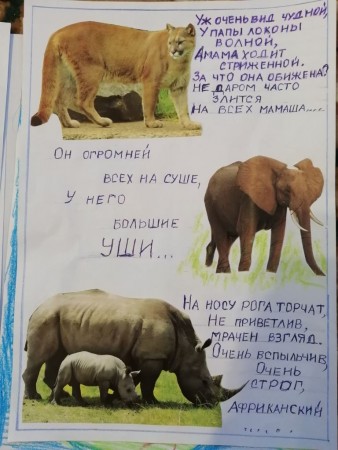 Уж очень вид чудной,
У папы локоны
волной,
А мама ходит
стриженной.
За что она обижена?
Не даром часто
злится
На всех мамаша.....
Он огромней
всех на суше,
У него
большие
уши...
На носу рога торчат,
Не приветлив,
мрачен взгляд.
Очень вспыльчив,
Очень
строг,
Африканский
......